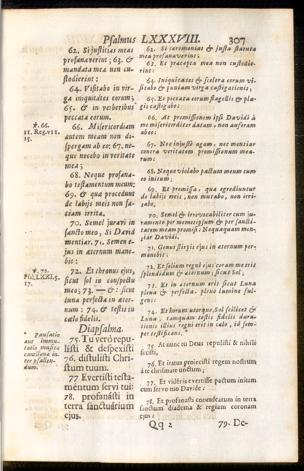 Psalmus LXXXVIII. 307
62. Si justitias meas
profanaverint; 63. &
mandata mea non cu-
stodierint:
64. Visitabo in vir-
ga iniquitates eorum;
65. & in verberibus
peccata eorum.
66. Misericordiam
autem meam non di-
spergam ab eo: 67. ne-
que nocebo in veritate
mea;
68. Neque profana-
bo testamentum meum;
69. & quæ procedunt
de labijs meis non fa-
ciam irrita.
70. Semel juravi in
sancto meo, Si David
mentiar. 71. Semen e-
jus in æternum mane-
bit:
72. Et thronus ejus,
sicut sol in conspectu
meo; 73. — &: sicut
luna perfecta in æter-
num: 74. & testis in
cælo fidelis.
Diapsalma.
75. Tu verò repu-
listi & despexisti
76. distulisti Chri-
stum tuum.
77 Evertisti testa-
mentum servi tui:
78. profanasti in
terra sanctuarium
ejus.
℣. 66.
11. Reg. VII,
15.
℣. 72.
Psal. LXXI. 5.
17.
* Pausatio
62. Si ceremonias & justa statuta
mea profanaverint;
63. Et præcepta mea non custodie-
rint:
64. Iniquitates & scelera eorum vi-
sitabo & puniam virga castigationis;
65. Et peccata eorum flagellis & pla-
gis castigabo:
66. At promissionem ipsi Davidi à
me misericorditer datam, non auferam
abeo:
67. Nec injustè agam, nec mentiar
contra veritatem promissionum mea-
rum:
68. Neque violabo pactum meum cum
eo initum;
69. Et promissa, quæ egrediuntur
de labijs meis, non mutabo, non irri-
tabo,
70. Semel & irrevocabiliter cum ju-
ramento per memetipsum & per sancti-
tatem meam promisi: Nequaquam men-
tiar Davidi.
71. Genus stirpis ejus in æternum per-
manebit:
72. Et solium regni ejus coram me erit
splendidum & æternum, sicut Sol;
73. Et in æternum erit sicut Luna
plena & perfecta, pleno lumine ful-
gens:
74. Et horum uterque, Sol scilicet &
Luna, tamquam testis fidelis durationis
illius regni erit in cælo, id semper
testificans.
75. At nunc tu Deus repulisti & nihili
fecisti,
76. Et iratus projecisti regem nostrum
à te christinare unctum;
77. Et videris evertisse pactum initum
cum servo tuo Davide:
78. Et profanasti conculcatum in terra
sanctum diadema & regiam coronam
ejus:
Qq 2 79. De-